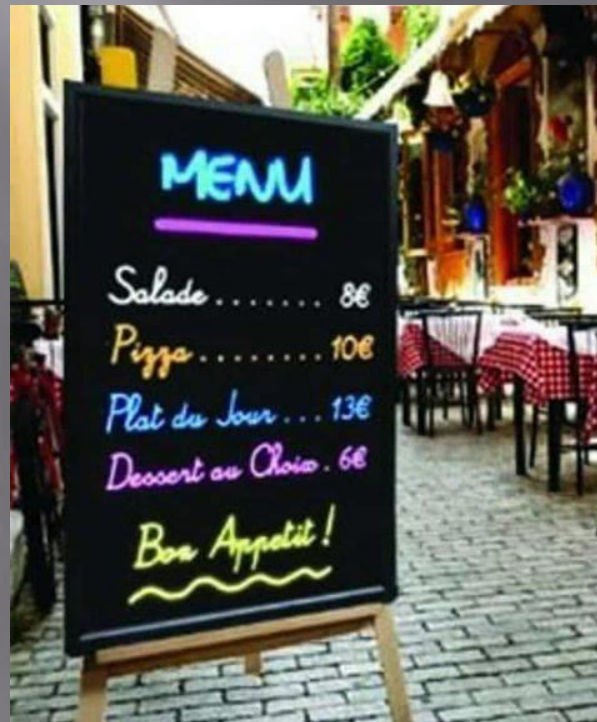 MENU
Salade ....... 8€
Pizza ........ 10€
Plat du Jour ... 13€
Dessert au Choix . 6€
Bon Appetit !